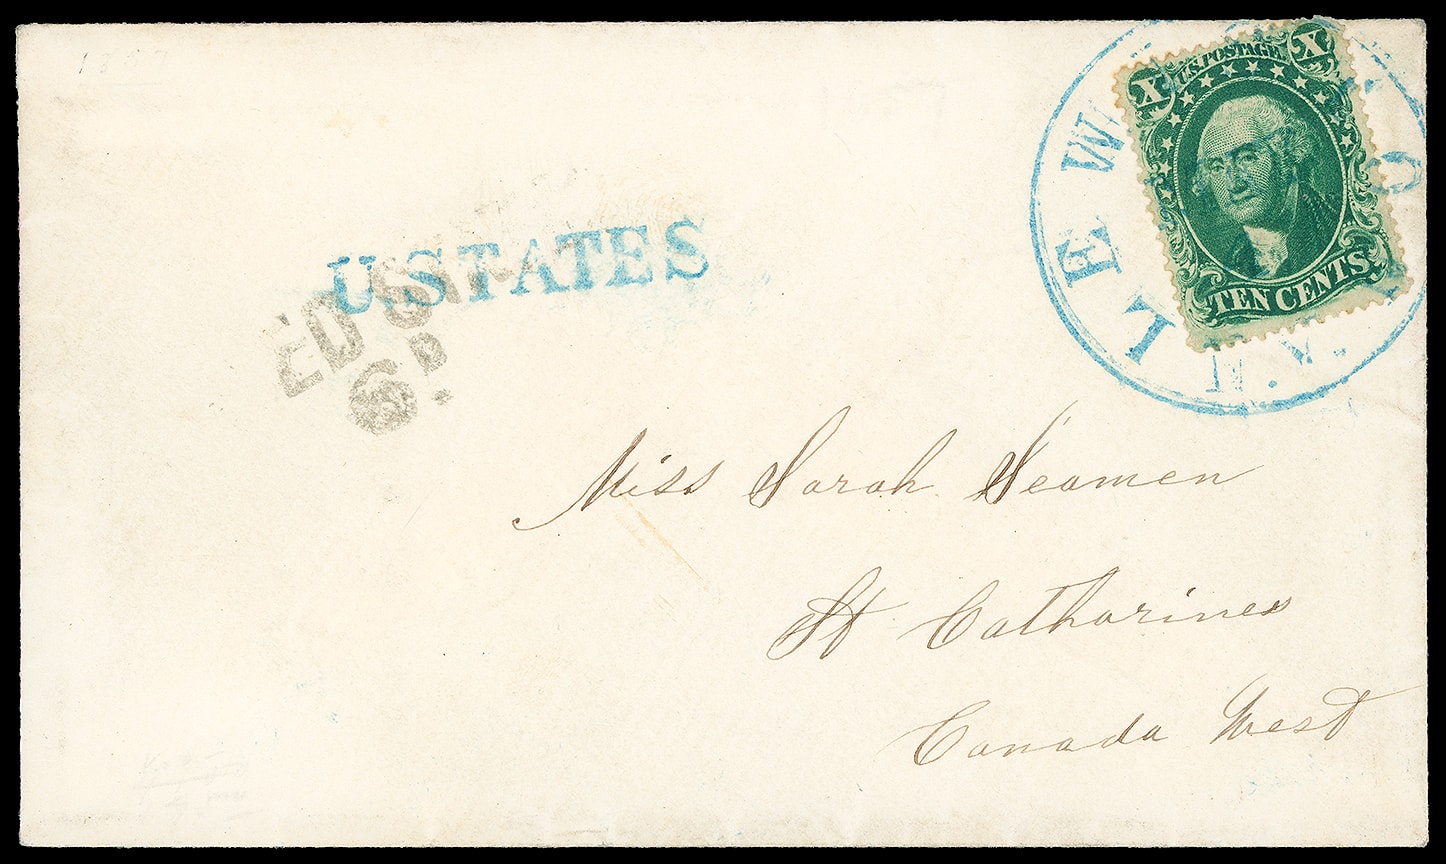 X U.S. POSTAGE X
TEN CENTS
LEW
N.Y.
U.STATES
ED ST
6D
Miss Sarah Seamen
St Catharines
Canada West